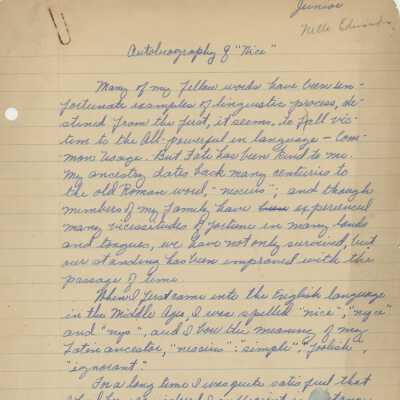 Junior
Nelle Edwards
Autobiography of "Nice"
Many of my fellow words have been un-
fortunate examples of linguistic process, de-
stined from the first, it seems, to fall vic-
tim to the All-powerful in language - Com-
mon Usage. But Fate has been kind to me.
My ancestry dates back many centuries to
the old Roman word, - nescius"; and though
members of my family have experienced
many vicissitudes of fortune in many lands
and tongues, we have not only survived, but
our standing has been improved with the
passage of time.
When I first came into the English language
in the Middle Ages, I was spelled "nice", "nyce"
and "nys", and I bore the meaning of my
Latin ancestor, "nescius": "simple", "foolish",
"ignorant."
For a long time I was quite satisfied that